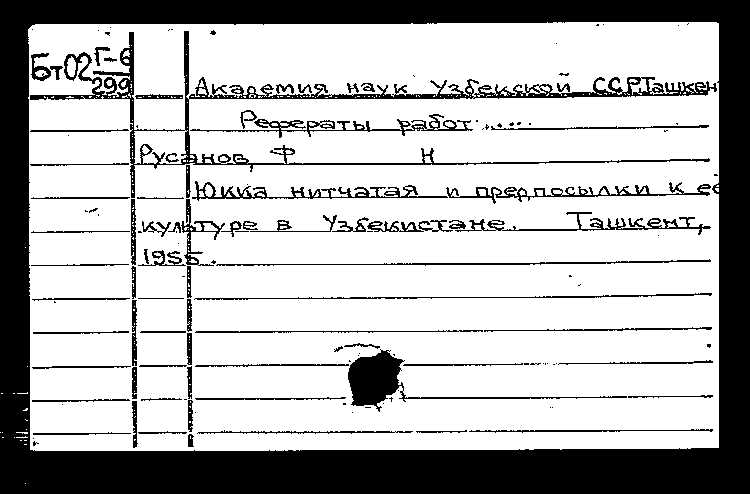 Бт02 Г-6
299
Академия наук Узбекской ССР.Ташкен
Рефераты работ.....
Русанов, Ф Н
Юкка нитчатая и предпосылки к её
культуре в Узбекистане. Ташкент,-
1955.